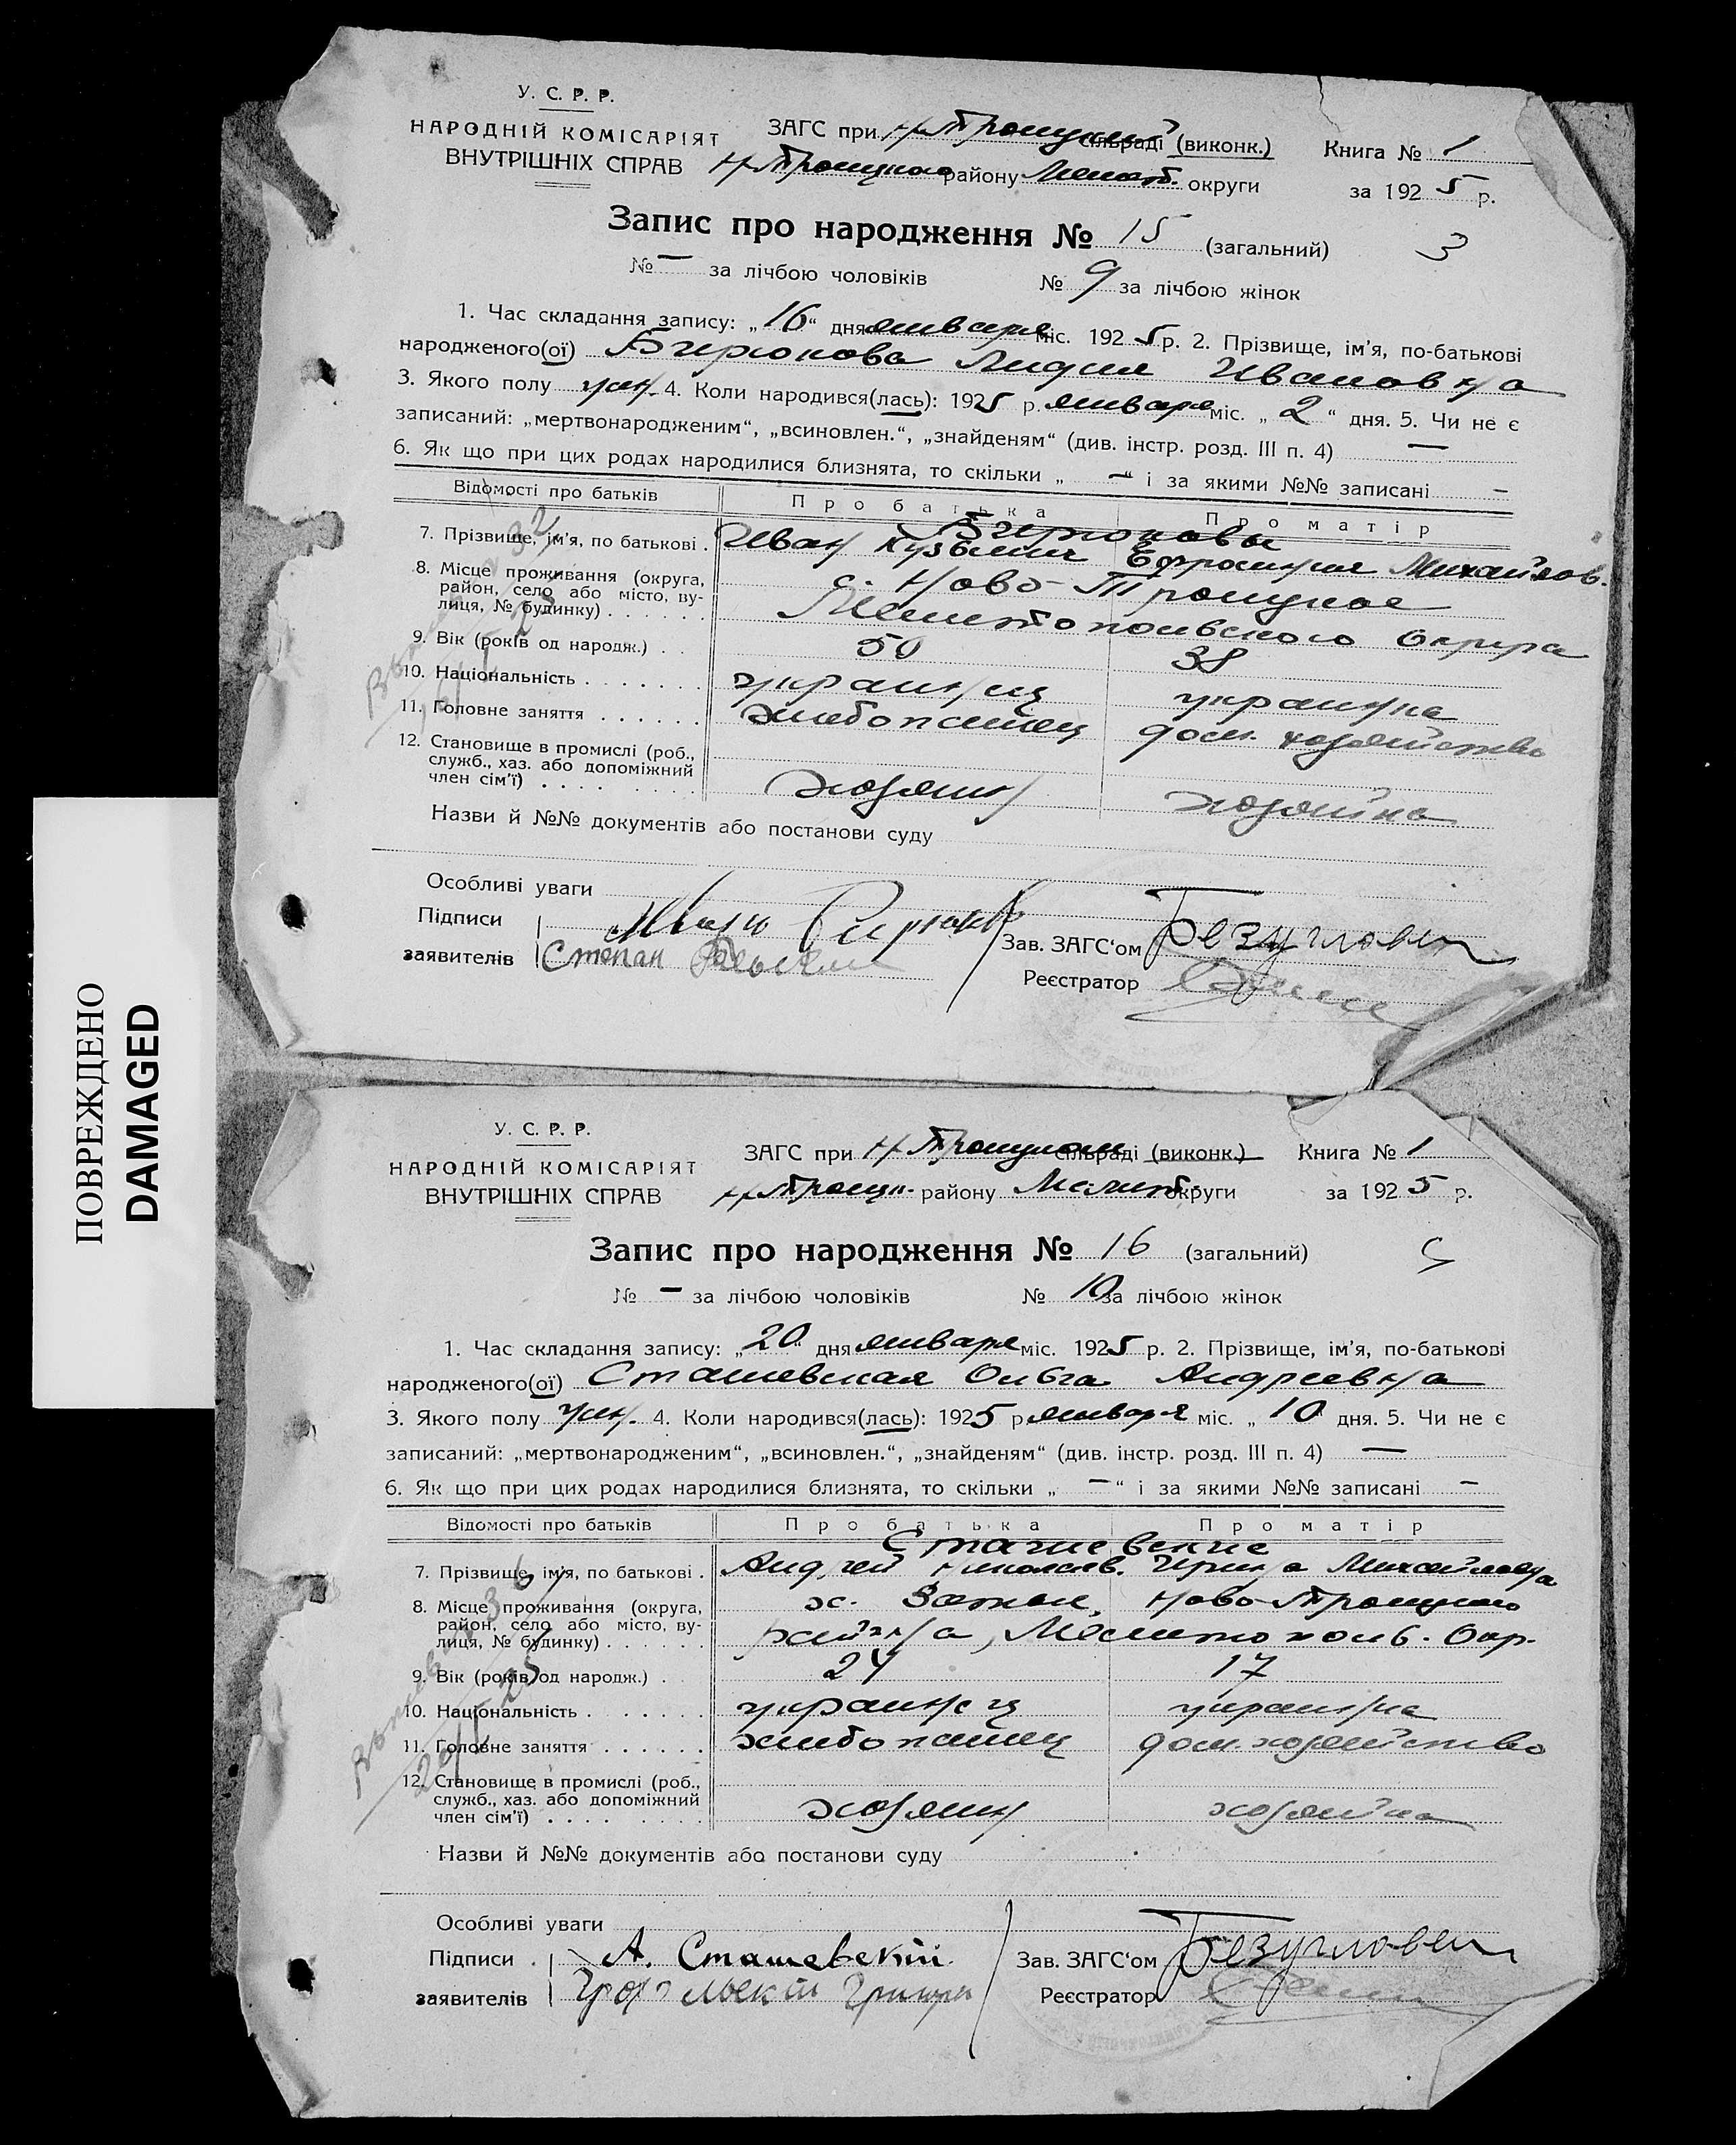 ПОВРЕЖДЕНО
DAMAGED
У. С. Р. Р.
НАРОДНІЙ КОМІСАРІЯТ
ВНУТРІШНІХ СПРАВ
ЗАГС при Н-Троицкой сільраді (виконк.)
Н-Троицкого району Мелит. округи
Книга № 1
за 1925 р.
Запис про народження № 15 (загальний) 3
№ — за лічбою чоловіків № 9 за лічбою жінок
1. Час складання запису: „16“ дня января міс. 1925 р. 2. Прізвище, ім'я, по-батькові
народженого(ої) Бирюкова Лидия Ивановна
3. Якого полу жен. 4. Коли народився(лась): 1925 р. января міс. „2“ дня. 5. Чи не є
записаний: „мертвонародженим“, „всиновлен.“, „знайденям“ (див. інстр. розд. III п. 4) —
6. Як що при цих родах народилися близнята, то скільки „—“ і за якими №№ записані —
Відомості про батьків Про батька Про матір
Бирюковы
7. Прізвище, ім'я, по батькові . Иван Кузьмич Ефросиния Михайлов.
8. Місце проживання (округа, район, село або місто, вулиця, № будинку) . . . . . . с. Ново-Троицкое
Мелитопольского округа
9. Вік (років од народж.) . . 50 38
10. Національність . . . . . . . украинец украинка
11. Головне заняття . . . . . . хлебопашец дом. хозяйство
12. Становище в промислі (роб.,
служб., хаз. або допоміжний
член сім'ї) . . . . . . . . . хозяин хозяйка
Назви й №№ документів або постанови суду
Особливі уваги
Підписи
заявителів Степан
Зав. ЗАГС'ом
Реєстратор
У. С. Р. Р.
НАРОДНІЙ КОМІСАРІЯТ
ВНУТРІШНІХ СПРАВ
ЗАГС при Н-Троицком сільраді (виконк.)
Н-Троицк. району Мелит. округи
Книга № 1
за 1925 р.
Запис про народження № 16 (загальний)
№ — за лічбою чоловіків № 10 за лічбою жінок
1. Час складання запису: „20“ дня января міс. 1925 р. 2. Прізвище, ім'я, по-батькові
народженого(ої) Сташевская Ольга Андреевна
3. Якого полу жен. 4. Коли народився(лась): 1925 р. января міс. „10“ дня. 5. Чи не є
записаний: „мертвонародженим“, „всиновлен.“, „знайденям“ (див. інстр. розд. III п. 4) —
6. Як що при цих родах народилися близнята, то скільки „—“ і за якими №№ записані —
Відомості про батьків Про батька Про матір
Сташевские
7. Прізвище, ім'я, по батькові . Андрей Николаев. Ирина Михайловна
8. Місце проживання (округа, район, село або місто, вулиця, № будинку) . . . . . . х. Ново-Троицкого
района, Мелитопольс. Окр.
9. Вік (років од народж.) . 24 17
10. Національність . . . . . . . украинец украинка
11. Головне заняття . . . . . . хлебопашец дом. хозяйство
12. Становище в промислі (роб.,
служб., хаз. або допоміжний
член сім'ї) . . . . . . . . . хозяин хозяйка
Назви й №№ документів або постанови суду
Особливі уваги
Підписи . А. Сташевский
заявителів
Зав. ЗАГС'ом
Реєстратор